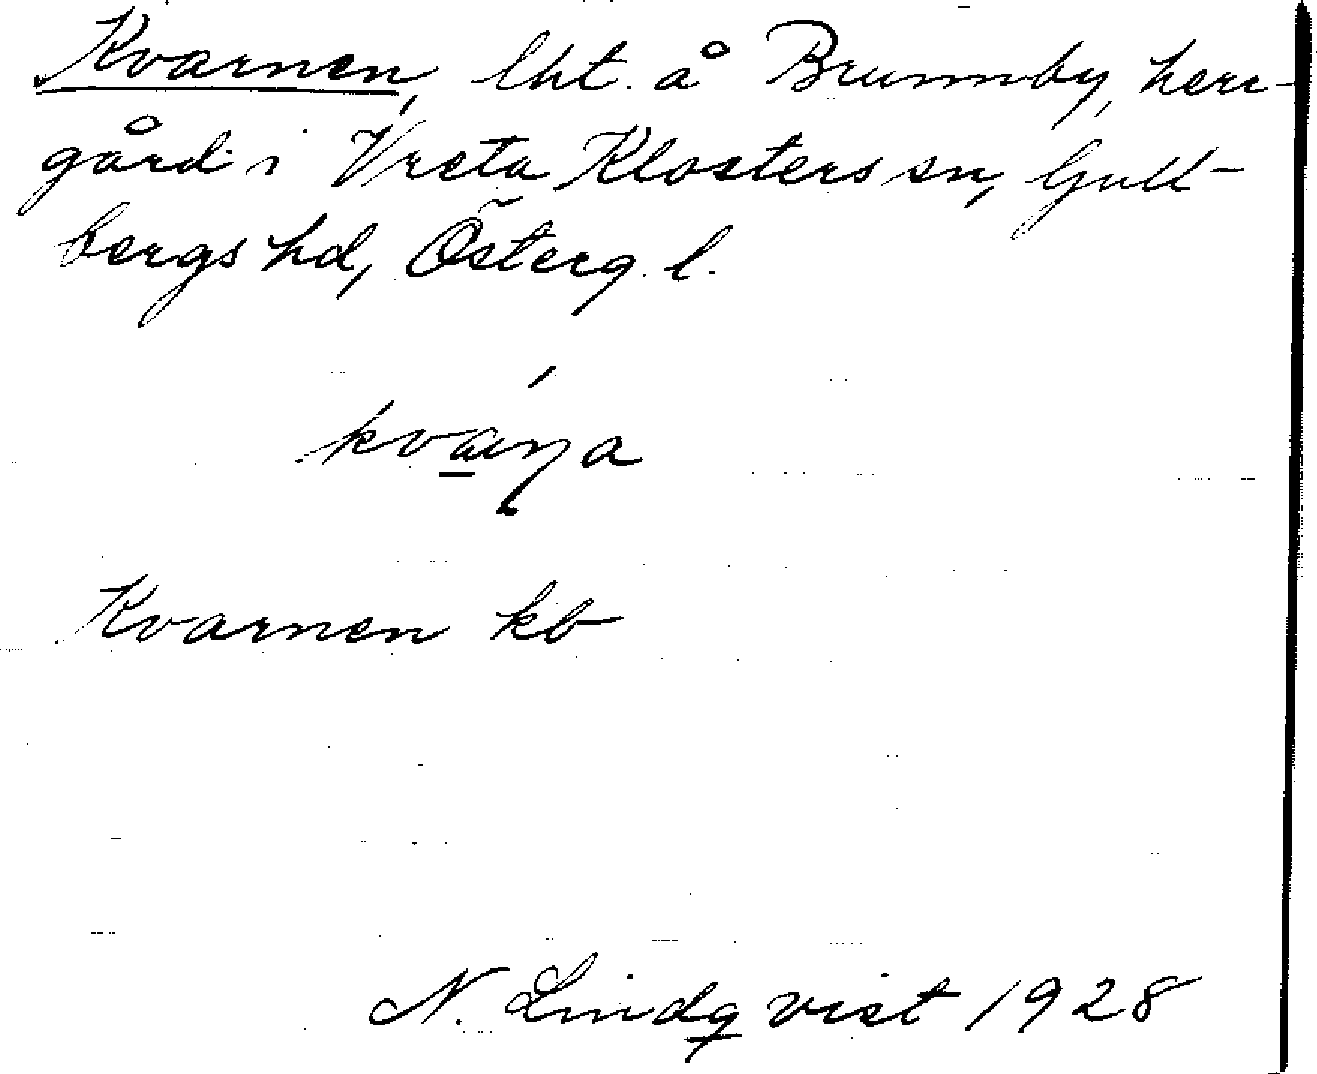 Kvarnen, lht. å Brunnby, herr-
gård i Vreta Klosters sn, Gull-
bergs hd, Österg. l.
Kvarnen kb
N. Lindqvist 1928